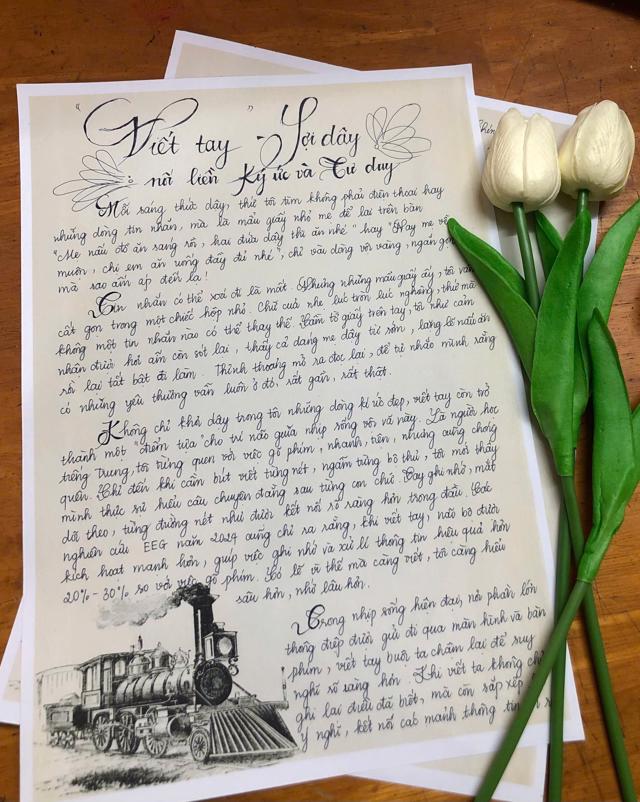 "Viết tay" - Sợi dây
nối liền Ký ức và Tư duy
Mỗi sáng thức dậy, thứ tôi tìm không phải điện thoại hay
những dòng tin nhắn, mà là mẩu giấy nhỏ mẹ để lại trên bàn
"Mẹ nấu đồ ăn sáng rồi, hai đứa dậy thì ăn nhé" hay "Nay mẹ về
muộn, chị em ăn uống đầy đủ nhé", chỉ vài dòng vội vàng, ngắn gọn
mà sao ấm áp đến lạ!
Tin nhắn có thể xoá đi là mất. Nhưng những mẩu giấy ấy, tôi vẫn
cất gọn trong một chiếc hộp nhỏ. Chữ của mẹ lúc tròn lúc nghiêng, thứ mà
không một tin nhắn nào có thể thay thế. Cầm tờ giấy trên tay, tôi như cảm
nhận được hơi ấm còn sót lại, thấy cả dáng mẹ dậy từ sớm, lặng lẽ nấu ăn
rồi lại tất bật đi làm. Thỉnh thoảng mở ra đọc lại, để tự nhắc mình rằng
có những yêu thương vẫn luôn ở đó, rất gần, rất thật.
Không chỉ khơi dậy trong tôi những dòng kí ức đẹp, viết tay còn trở
thành một "điểm tựa" cho trí não giữa nhịp sống vội vã này. Là người học
tiếng Trung, tôi từng quen với việc gõ phím, nhanh, tiện, nhưng cũng chóng
quên. Chỉ đến khi cầm bút viết từng nét, ngẫm từng bộ thủ, tôi mới thấy
mình thực sự hiểu câu chuyện đằng sau từng con chữ. Tay ghi nhớ, mắt
dõi theo, từng đường nét như được kết nối rõ ràng hơn trong đầu. Các
nghiên cứu EEG năm 2024 cũng chỉ ra rằng, khi viết tay, não bộ được
kích hoạt mạnh hơn, giúp việc ghi nhớ và xử lí thông tin hiệu quả hơn
20% - 30% so với việc gõ phím. Có lẽ vì thế mà càng viết, tôi càng hiểu
sâu hơn, nhớ lâu hơn.
Trong nhịp sống hiện đại, nơi phần lớn
thông điệp được gửi đi qua màn hình và bàn
phím, viết tay buộc ta chậm lại để suy
nghĩ rõ ràng hơn. Khi viết ta không chỉ
ghi lại điều đã biết, mà còn sắp xếp
ý nghĩ, kết nối các mảnh thông tin